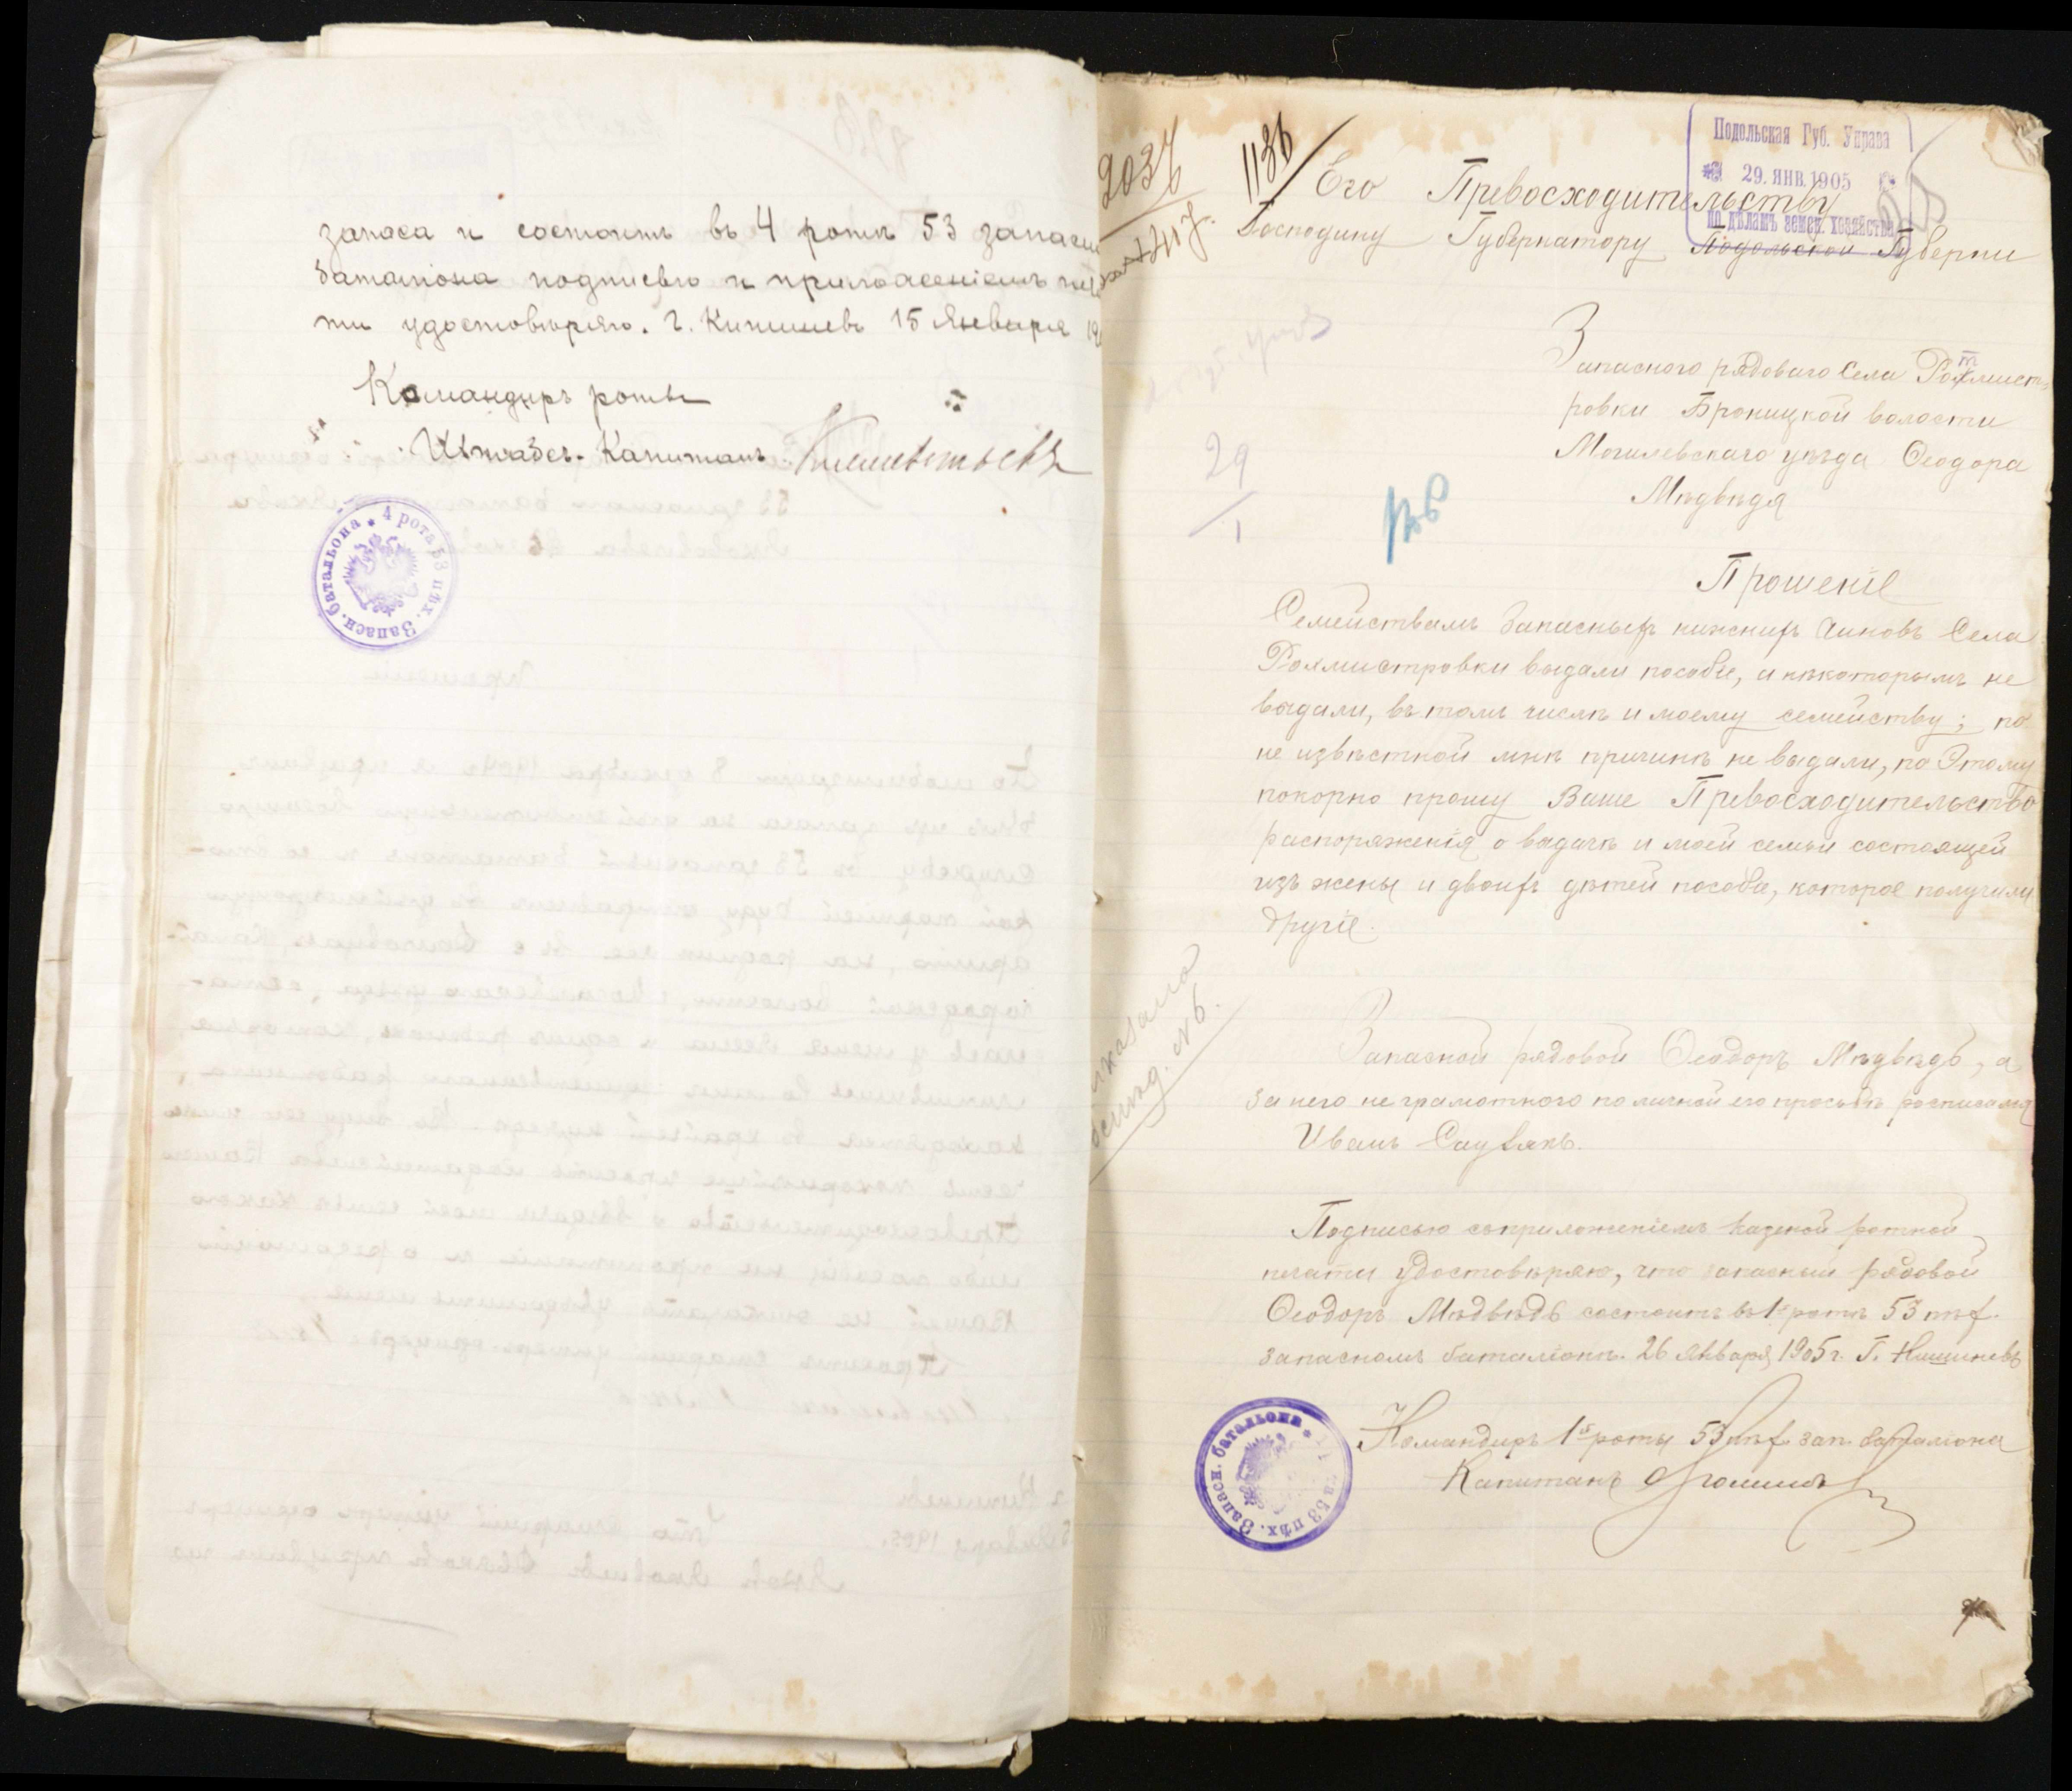 запаса и состоитъ въ 4 ротѣ 53 запасн
баталіона подписью и приложеніемъ печа
ти удостовѣряю. г. Кишиневъ 15 Января 19
Командиръ роты
Штабсъ-Капитанъ
4 рота 53 пѣх. Запасн. баталіона
1136
Подольская Губ. Управа
29. ЯНВ. 1905
по дѣламъ земск. хозяйства
Его Превосходительству
Господину Губернатору Подольской Губерни
Запасного рядоваго Села Ротмист-
ровки Броницкой волости
Могилевскаго уѣзда Ѳеодора
Мѣдвѣдя
29
1
Прошеніе
Семействамъ Запасныхъ нижнихъ Чиновъ Села
Рохмистровки выдали пособіе, а нѣкоторымъ не
выдали, въ томъ числѣ и моему семейству; по
не извѣстной мнѣ причинѣ не выдали, по Этому
покорно прошу Ваше Превосходительство
распоряженія о выдачѣ и моей семьи состоящей
изъ жены и двоихъ дѣтей пособіе, которое получили
другіе.
Запасной рядовой Ѳеодоръ Мѣдвѣдь, а
за него не грамотного по личной его просьбѣ росписался
Иванъ
Подписью съ приложеніемъ казеной ротной
печати Удостовѣряю, что запасный рядовой
Ѳеодоръ Мѣдвѣдь состоитъ въ 1й ротѣ 53 пѣх.
запасномъ баталіонѣ. 26 Января 1905 г. Г. Кишиневъ
Командиръ 1й роты 53 пѣх. зап. баталіона
Капитанъ
53 пѣх. Запасн. баталіона